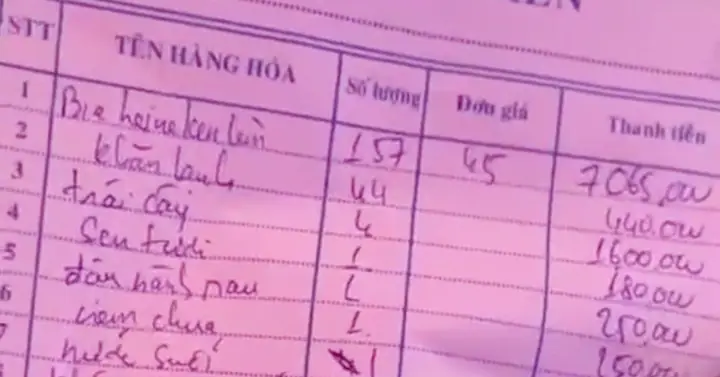 STT TÊN HÀNG HÓA Số lượng Đơn giá Thành tiền
1 Bia heineken lùn 157 45 7065,00
2 khăn lạnh 44 440.00
3 trái cây 4 1600.00
4 Sen tươi 1 180.00
5 1 250.00
6 nem chua 1. 150.00
7 nước Suối 1